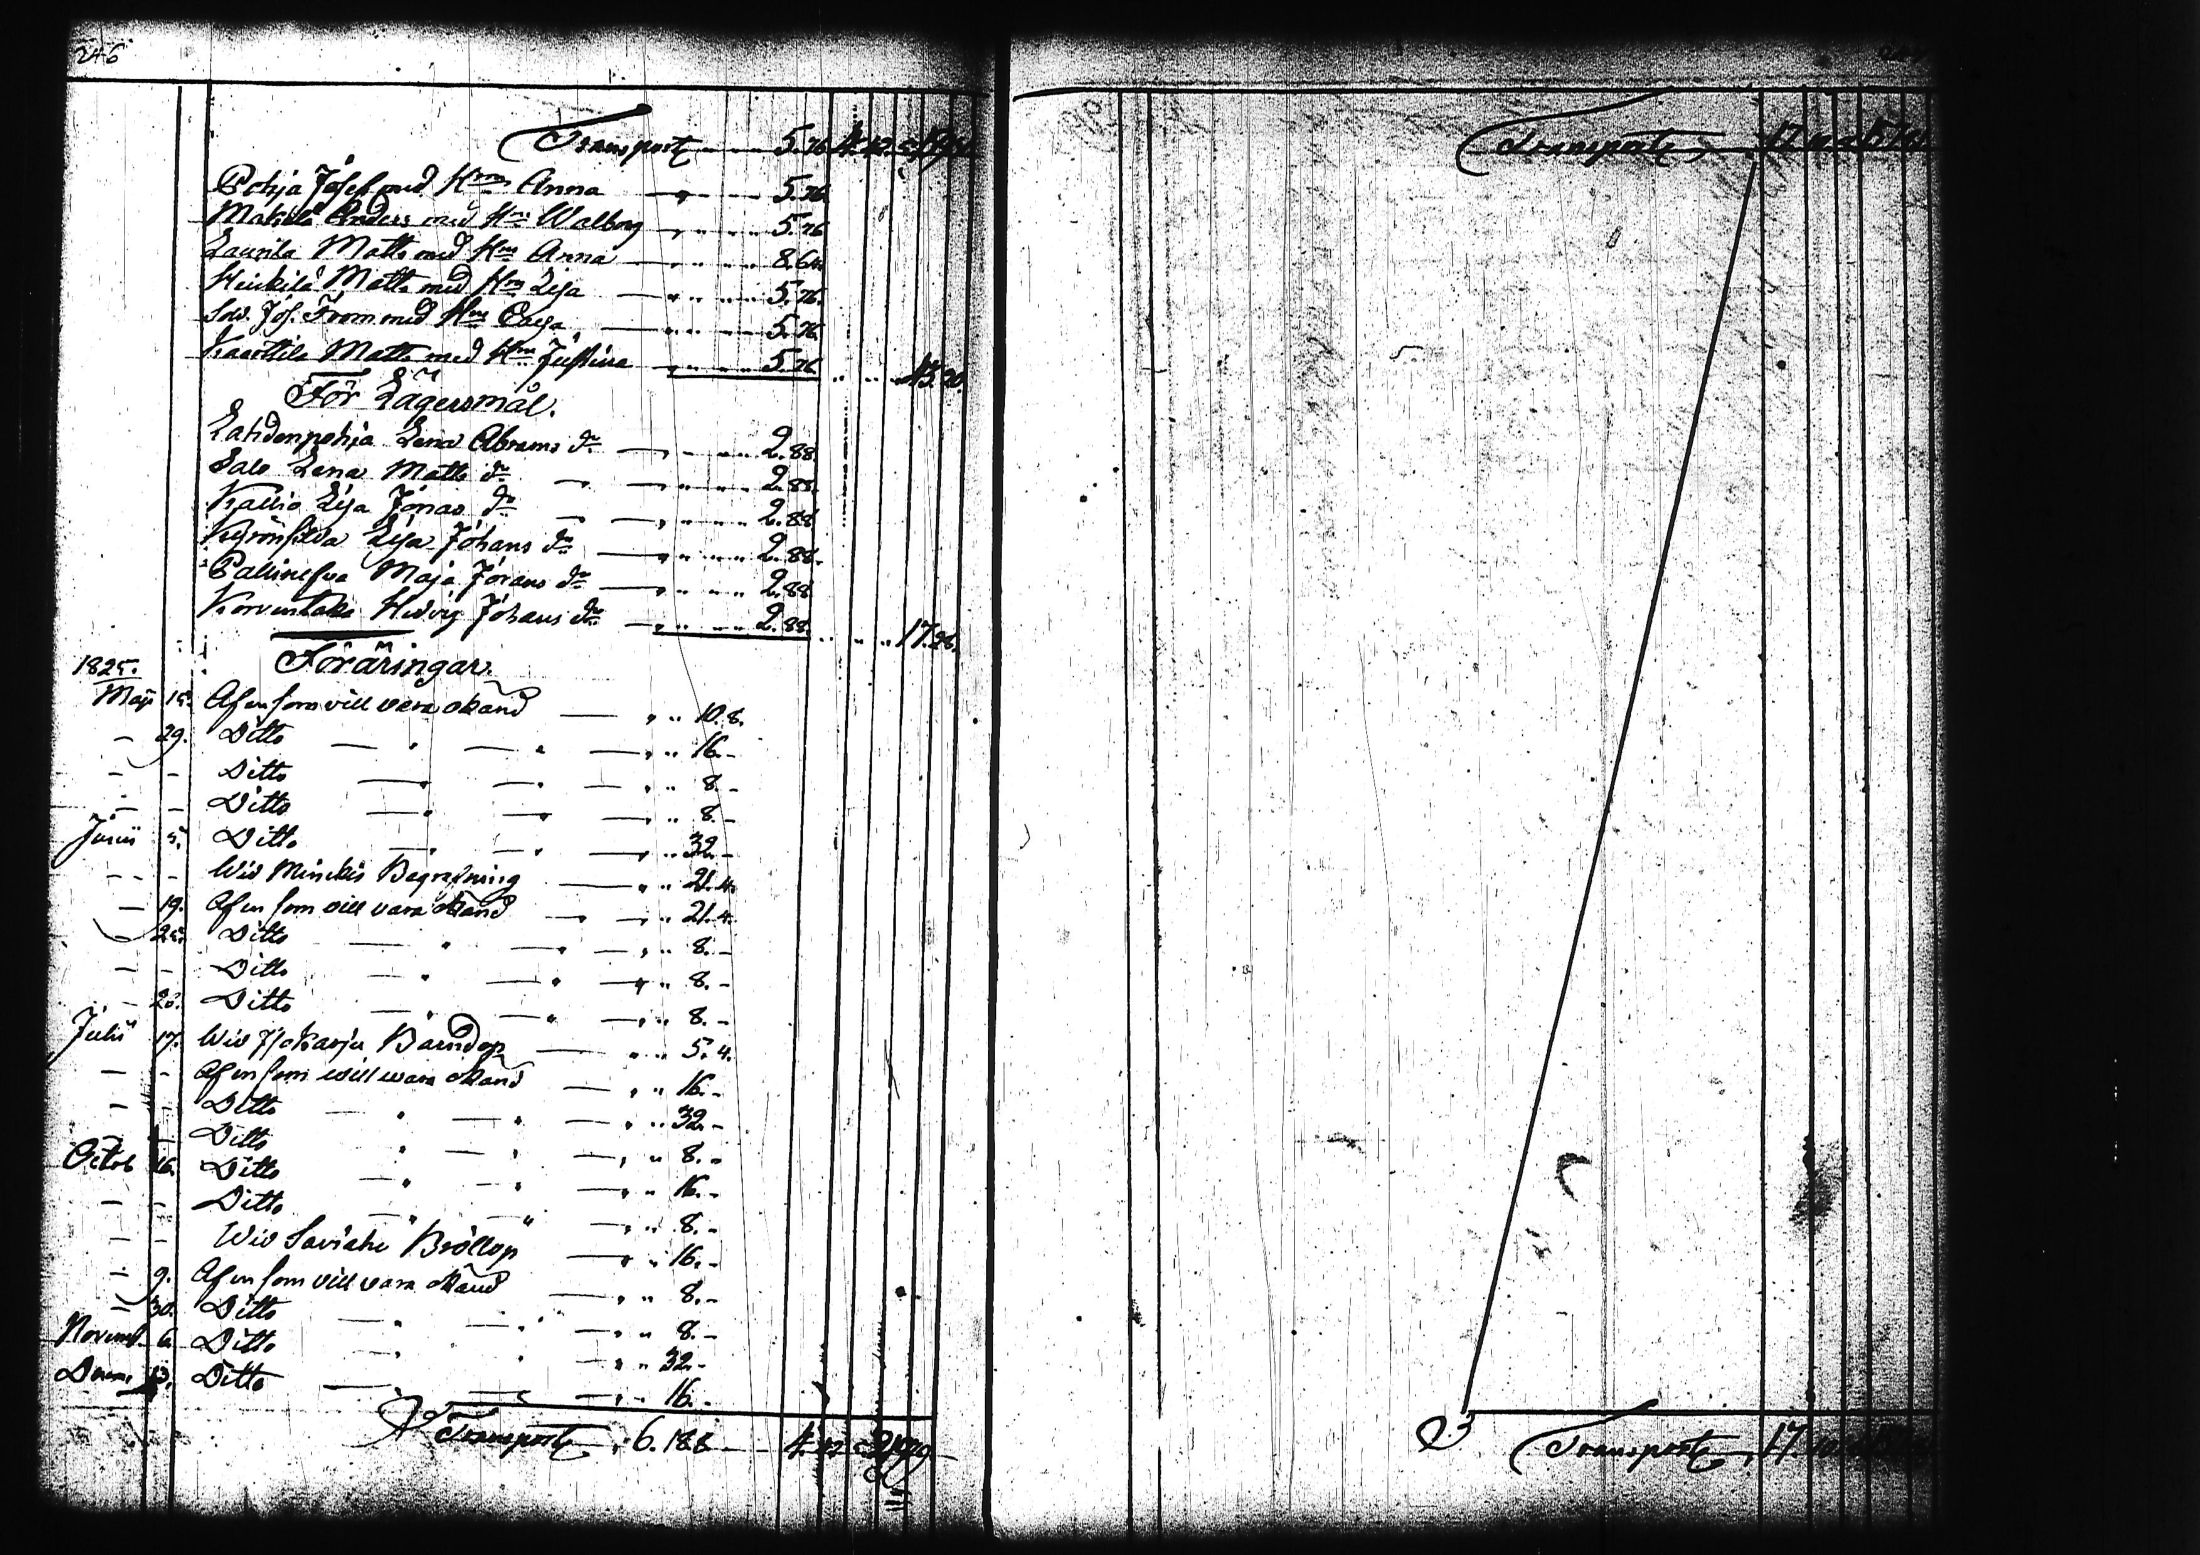 246
Transport 5.76 4. 42
Pohja Josef med H:m Anna 5.76
Mattila Anders med H:m Walborg 5.76
Laurila Matts med H:m Anna 8.64
Heickilä Matts med H:m Lisa 5.76.
Sold. Jos. From med H:m Caisa 5.76
Kaarttila Matts med H:m Justina 5.76 43.20
För Lägersmål.
Lahdenpohja Lena Abrams dr 2.88.
Salo Lena Matts dr 2.88.
Kallio Lisa Jonas dr 2.88
Lisa Johans dr 2.88.
Maja Jörans dr 2.88
Hedvig Johans dr 2.88. 17.28.
Föräringar.
1825.
Maji 15. Af en som vill vara okänd 10.8.
— 29. Ditto 16.-
— - Ditto 8.-
— - Ditto 8.-
Junii 5. Ditto 32.-
- - - Wid Minckis Begrafning 21.4.
— 19. Af en som vill vara okänd 21.4.
— 25. Ditto 8.-
— - Ditto 8.-
— 28. Ditto 8.-
Julii 17. Wid Barndop 5.4.
— - Af en som will wara okänd 16.-
— - Ditto 32.-
— - Ditto 8.-
Octob 16. Ditto 16.-
— - Ditto 8.-
— - Wid Saviahi Bröllop 16.-
— 9. Af en som vill vara okänd 8.-
— 30. Ditto 8.-
Novemb. 6. Ditto 32.-
Ditto 16.-
Transport 6.188 4. 42
Transport 17.
Transport 17.